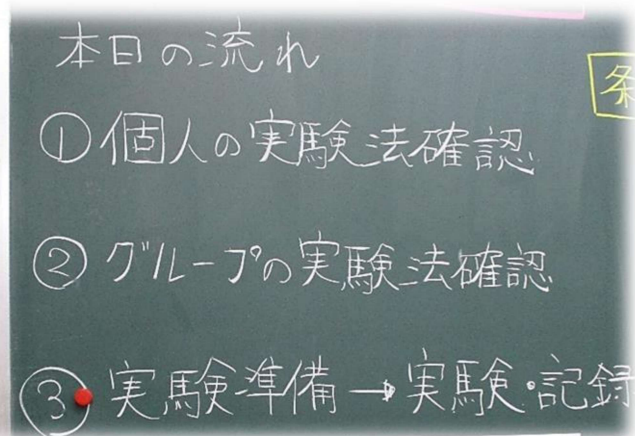 本日の流れ
①個人の実験法確認
②グループの実験法確認
③実験準備→実験・記録